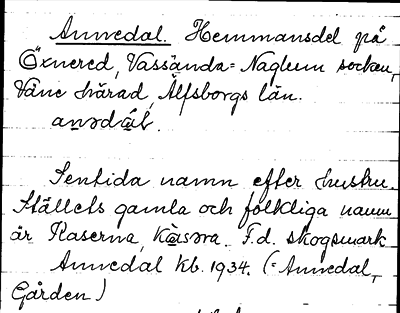 Annedal. Hemmansdel på
Öxnered, Vassända-Naglum socken,
Väne härad, Älfsborgs län.
anədál.
Sentida namn efter hustru.
Ställets gamla och folkliga namn
är Kaserna, kàsəra. F.d. skogsmark
Annedal kb. 1934. (=Annedal,
Gården)